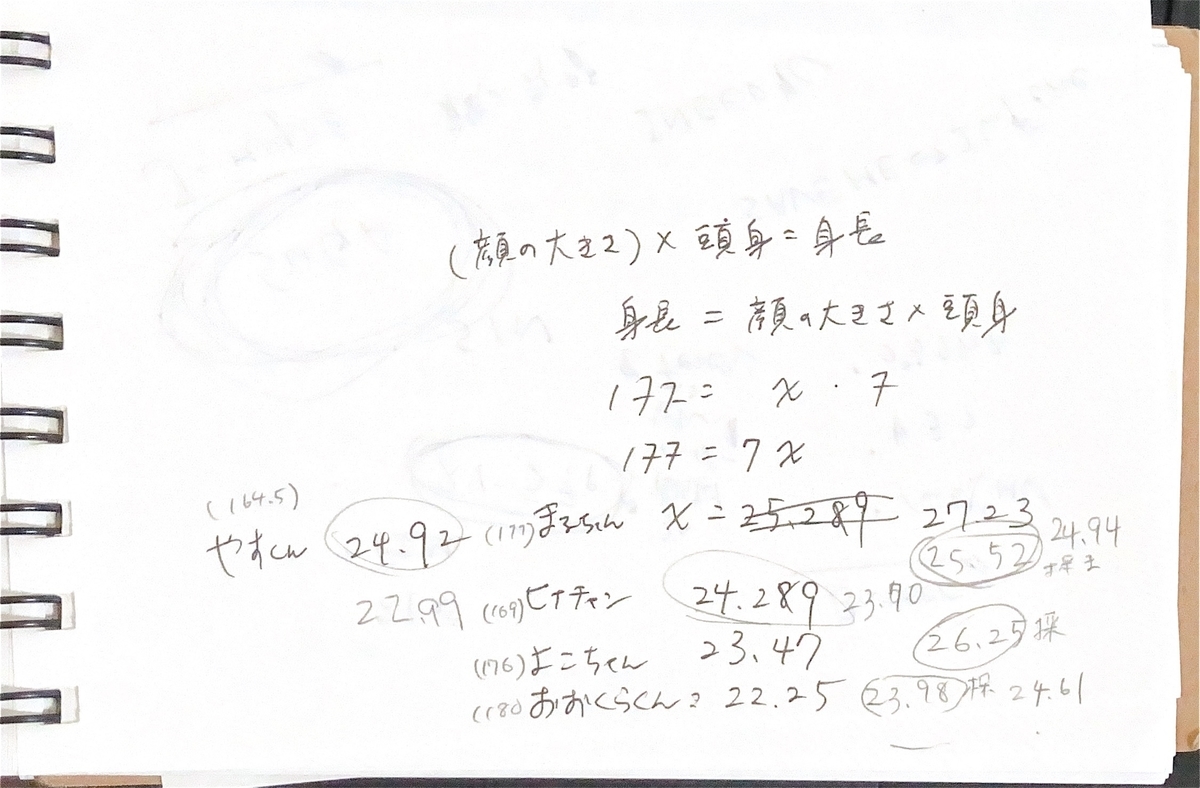 (顔の大きさ) × 頭身 = 身長
身長 = 顔の大きさ × 頭身
177 = x · 7
177 = 7x
(164.5)
やすくん 24.92 (177) まるちゃん x = 25.289 27.23 24.94
25.52 採
22.99 (169) ヒナチャン 24.289 23.90
(176) よこちゃん 23.47 26.25 採
(180) おおくらくん: 22.25 23.98 採 24.61